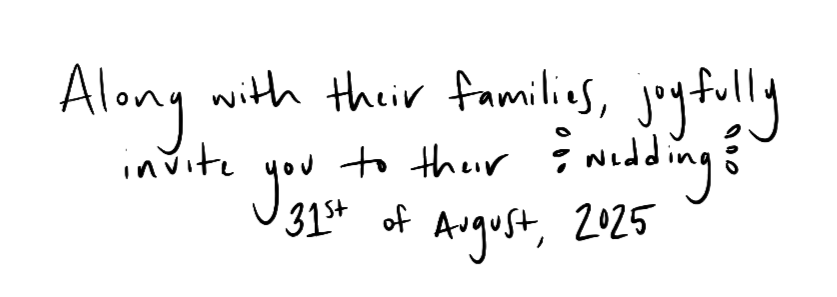 Along with their families, joyfully
invite you to their wedding
31st of August, 2025